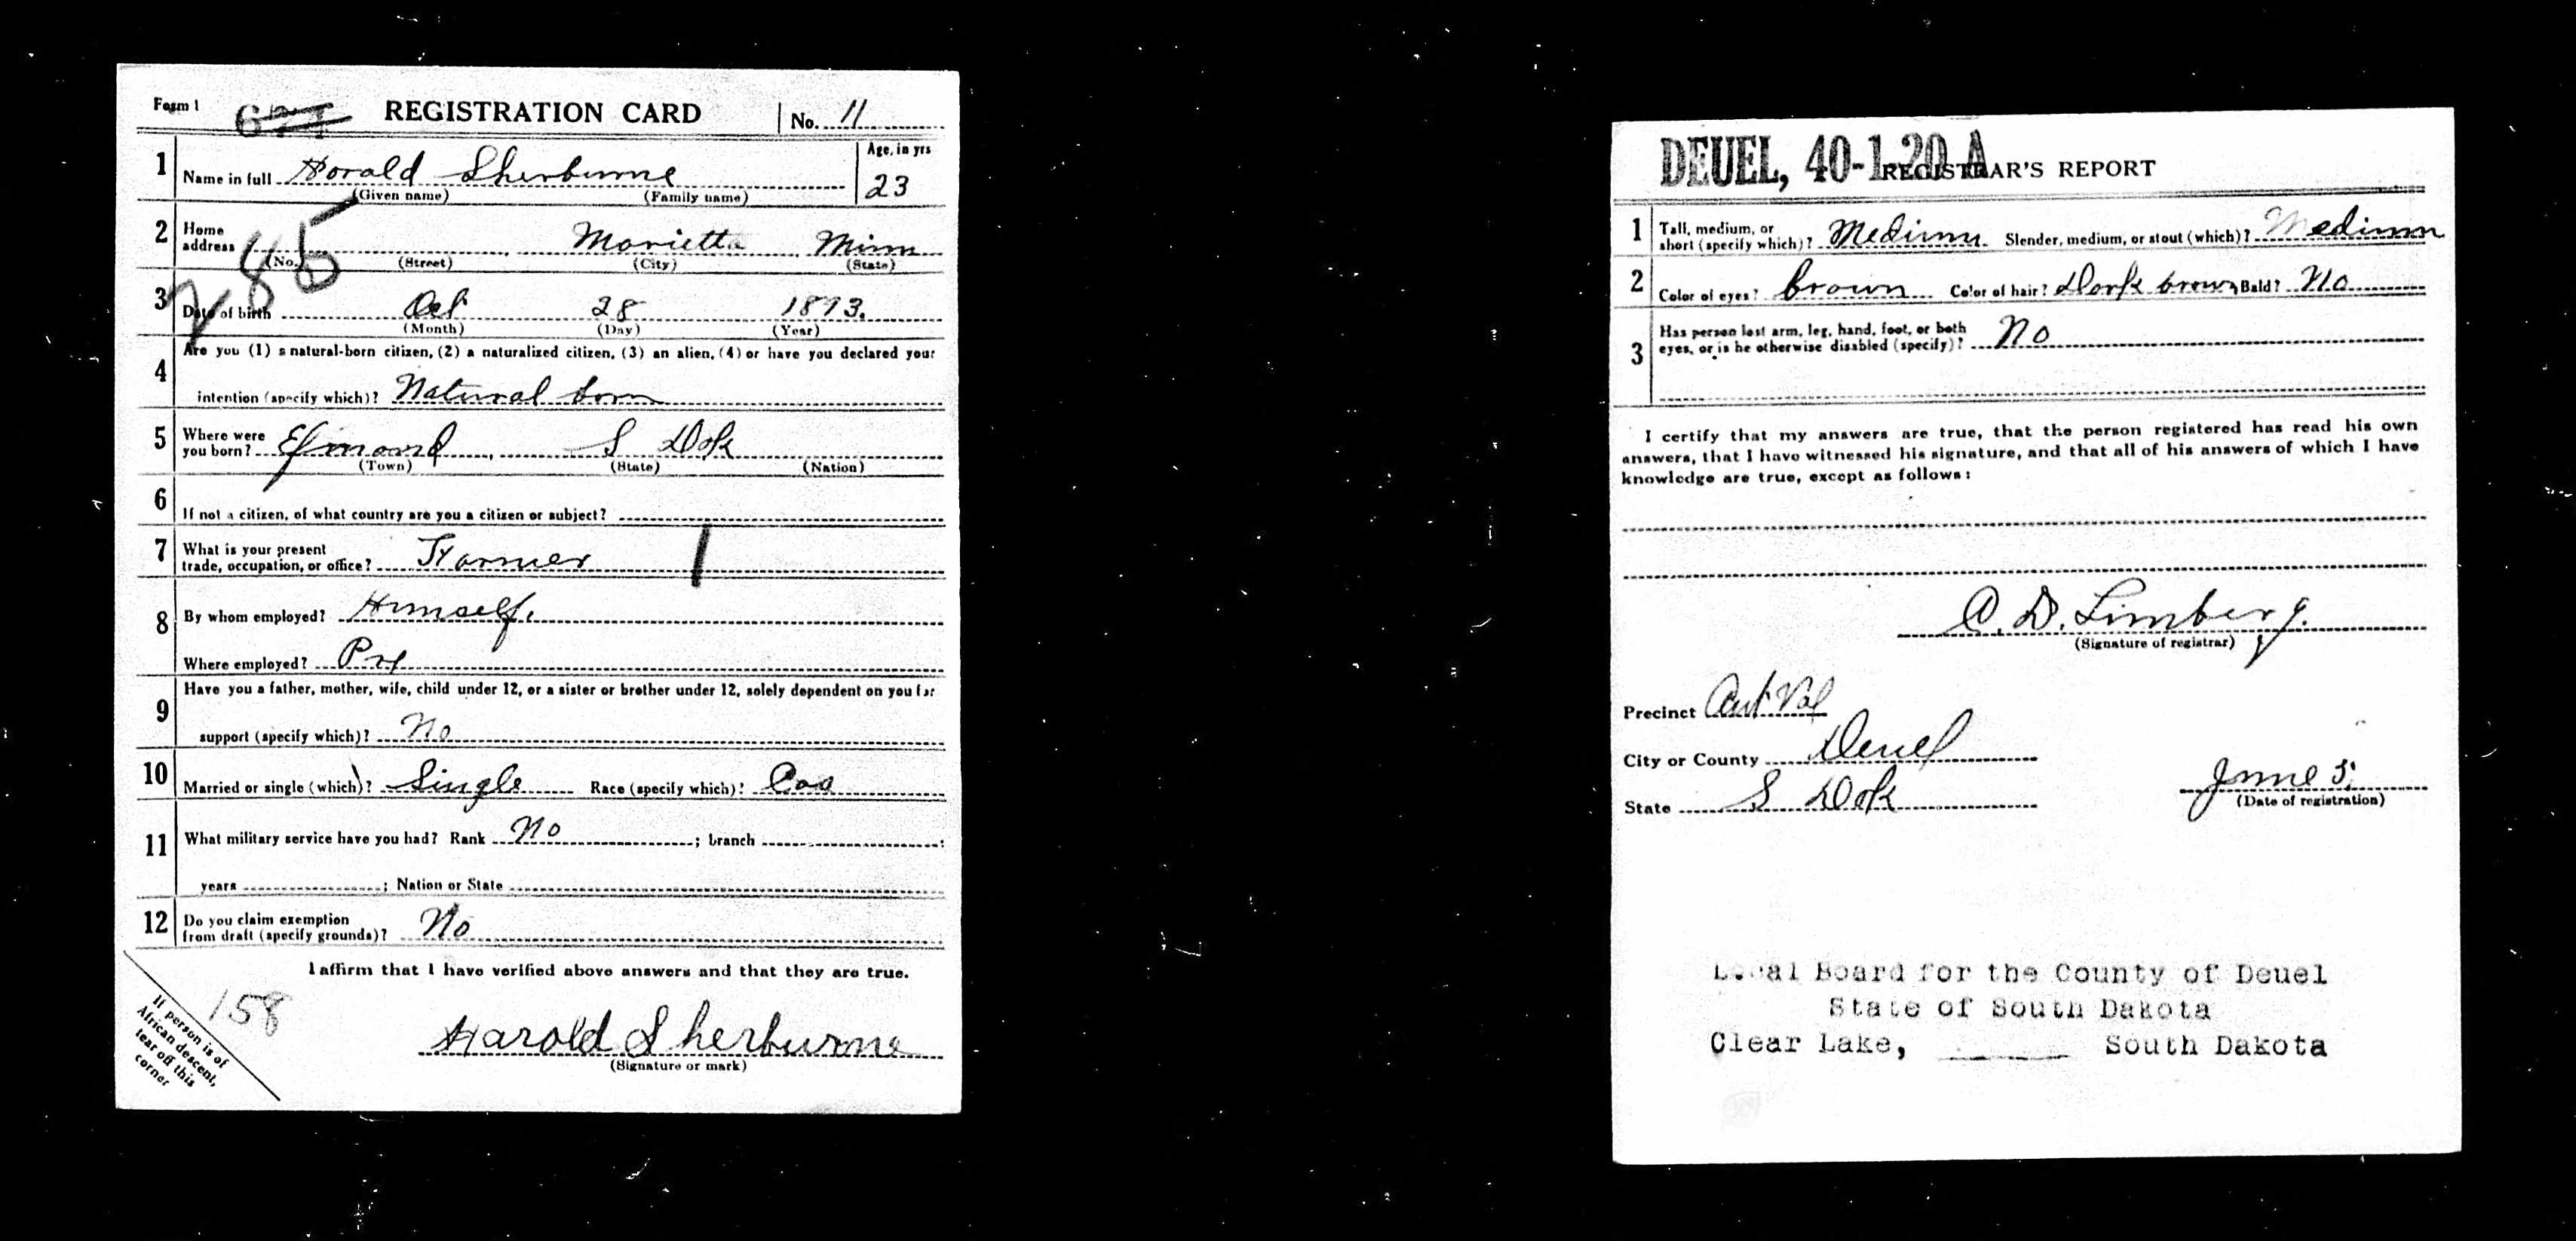 Form 1 REGISTRATION CARD No. 11
1 Name in full Harald Sherburne Age, in yrs
(Given name) (Family name) 23
2 Home address Marietta Minn
(No.) (Street) (City) (State)
285
3 Date of birth Oct 28 1893.
(Month) (Day) (Year)
4 Are you (1) a natural-born citizen, (2) a naturalized citizen, (3) an alien, (4) or have you declared your
intention (specify which)? Natural born
5 Where were you born? S Dak
(Town) (State) (Nation)
6 If not a citizen, of what country are you a citizen or subject?
7 What is your present
trade, occupation, or office? Farmer
8 By whom employed? Himself.
Where employed?
9 Have you a father, mother, wife, child under 12, or a sister or brother under 12, solely dependent on you for
support (specify which)? No
10 Married or single (which)? Single Race (specify which)? Cau
11 What military service have you had? Rank No ; branch ;
years ; Nation or State
12 Do you claim exemption
from draft (specify grounds)? No
I affirm that I have verified above answers and that they are true.
158
Harold Sherburne
(Signature or mark)
If person is of
African descent,
tear off this
corner
DEUEL, 40-1-20 A
REGISTRAR'S REPORT
1 Tall, medium, or
short (specify which)? Medium Slender, medium, or stout (which)? Medium
2 Color of eyes? brown Color of hair? Dark brown Bald? No
3 Has person lost arm, leg, hand, foot, or both
eyes, or is he otherwise disabled (specify)? No
I certify that my answers are true, that the person registered has read his own
answers, that I have witnessed his signature, and that all of his answers of which I have
knowledge are true, except as follows:
Limberg.
(Signature of registrar)
Precinct
City or County Deuel
State S Dak
June 5.
(Date of registration)
Local Board for the County of Deuel
State of South Dakota
Clear Lake, South Dakota